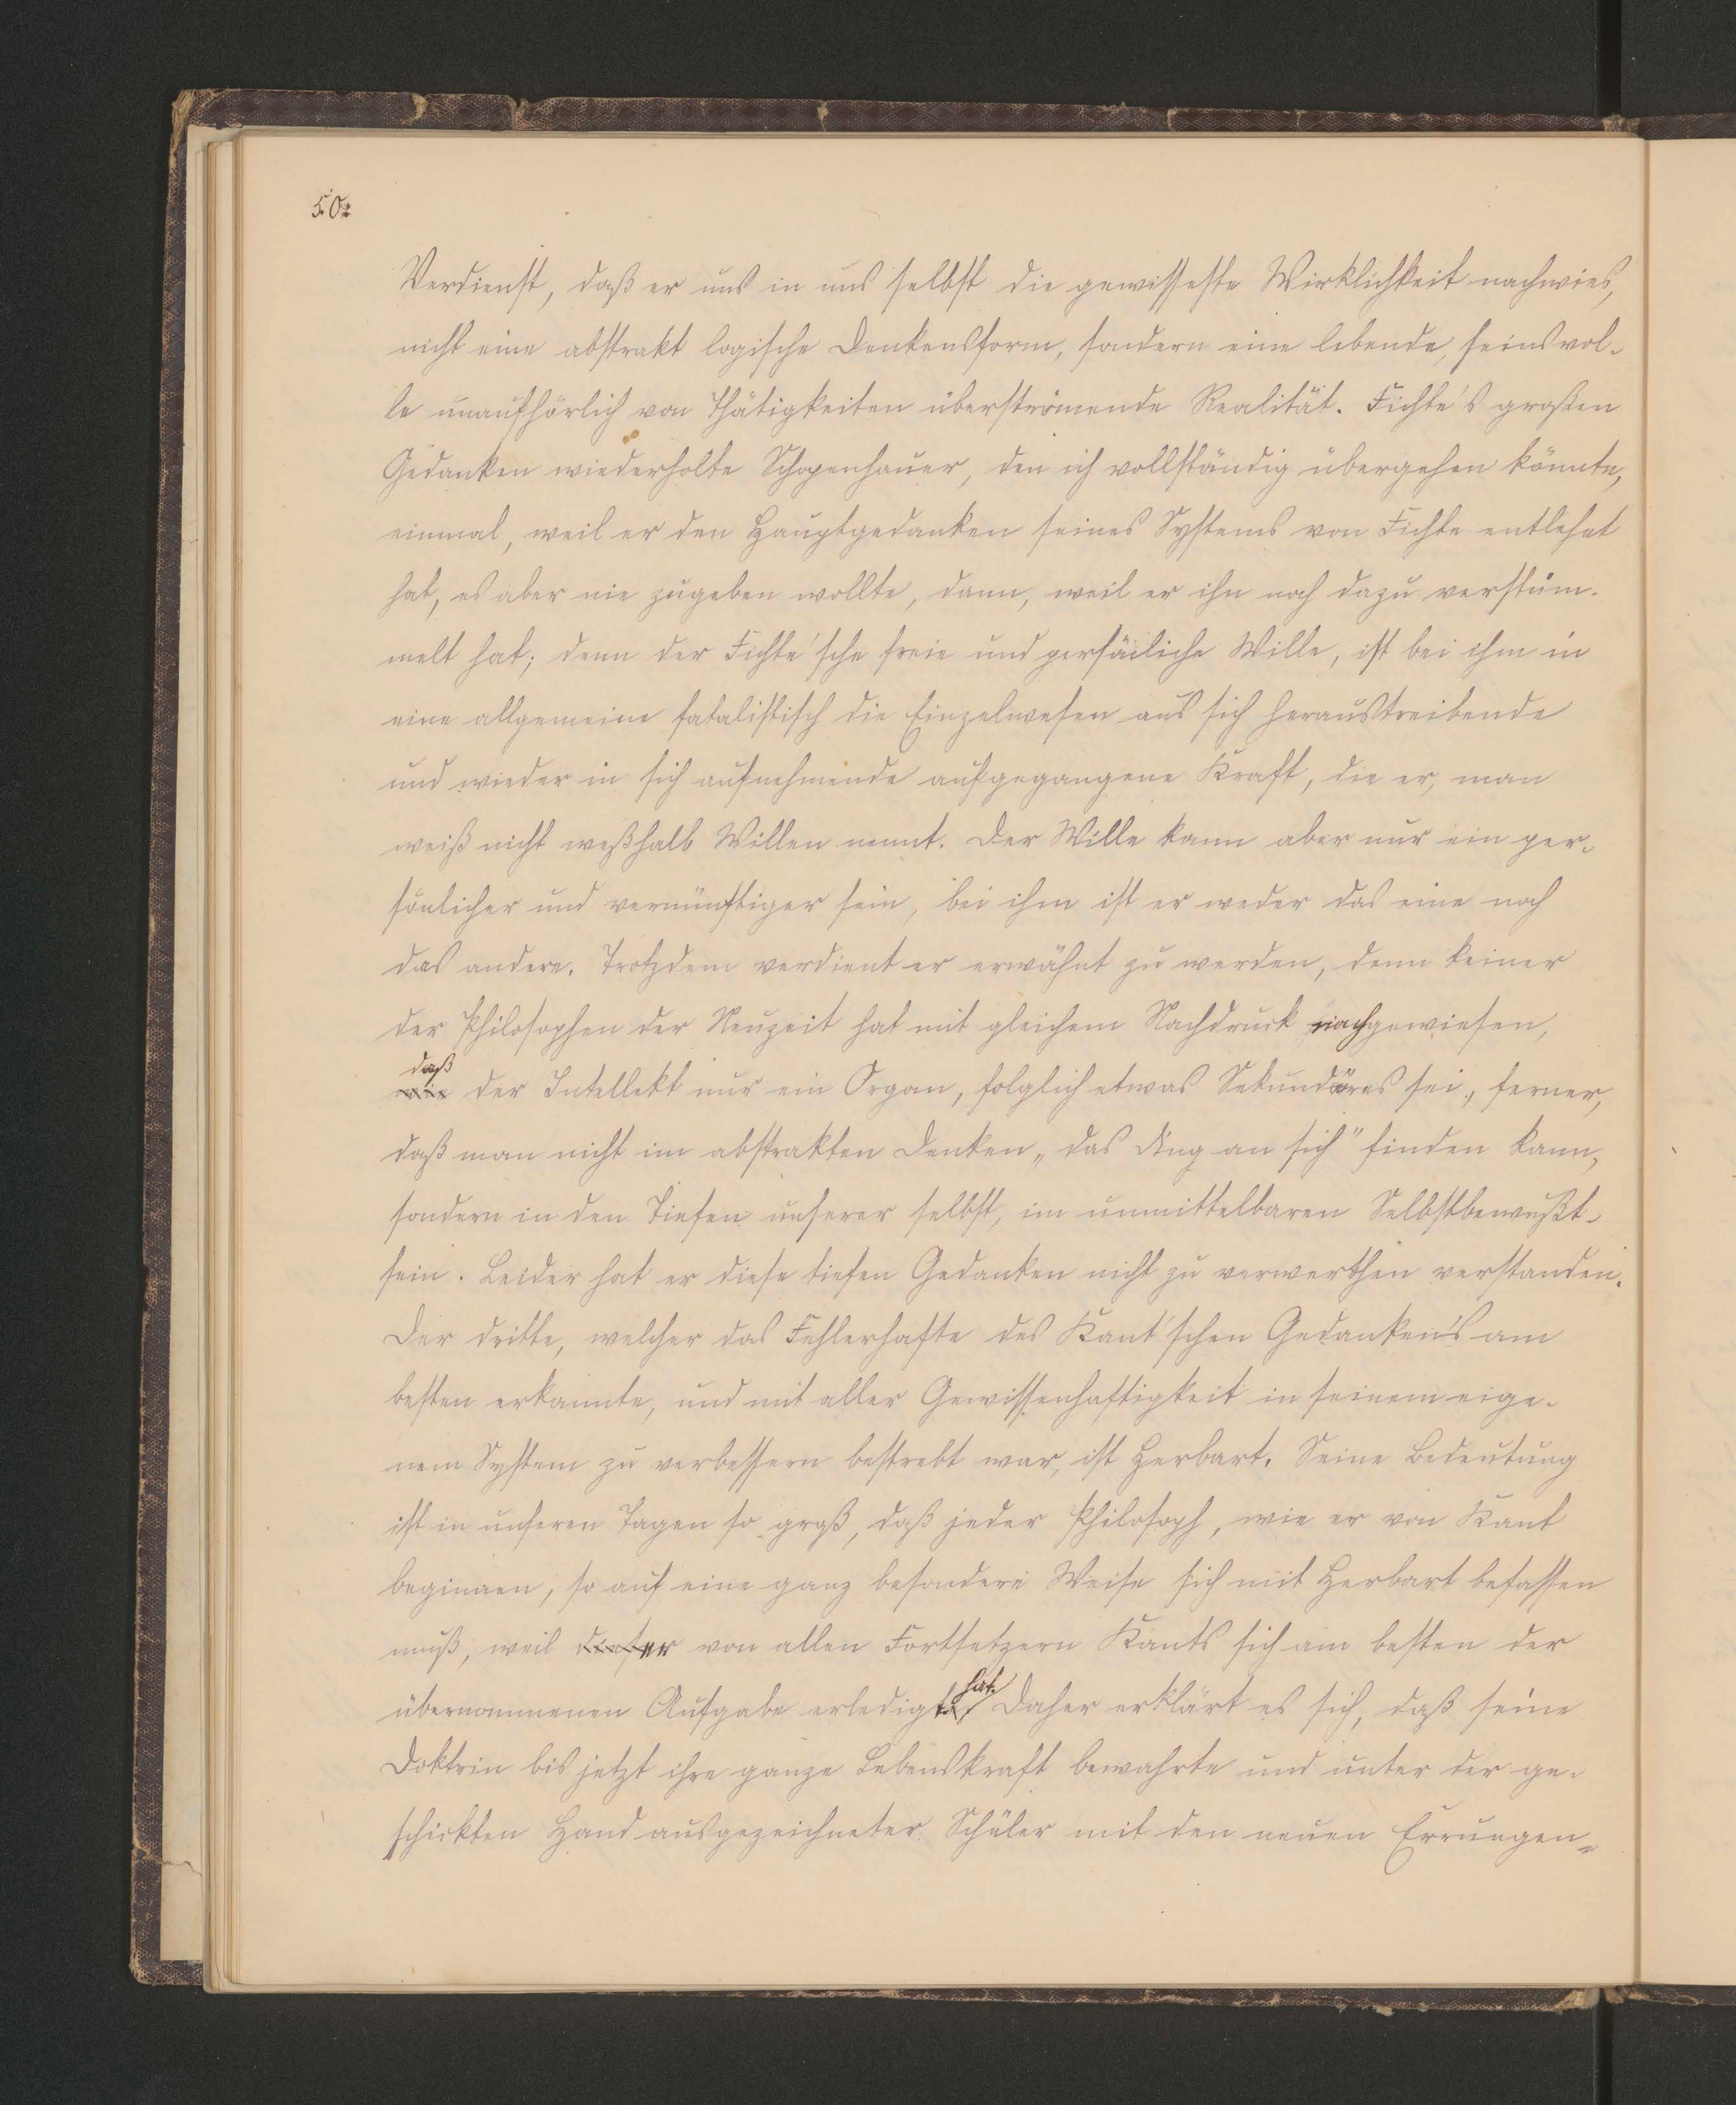 50.
Verdienst, daß er uns in uns selbst die gewisseste Wirklichkeit nachwies,
nicht eine abstrakt logische Denkensform, sondern eine lebende, seinsvol-
le unaufhörlich von Thätigkeiten überströmende Realität. Fichte's großen
Gedanken wiederholte Schopenhauer, den ich vollständig übergehen könnte,
einmal, weil er den Hauptgedanken seines Systems von Fichte entlehnt
hat, es aber nie zugeben wollte, dann, weil er ihn noch dazu verstüm-
melt hat; denn der Fichte'sche freie und persönliche Wille, ist bei ihm in
eine allgemeine fatalistisch die Einzelwesen aus sich heraustreibende
und wieder in sich aufnehmende aufgegangene Kraft, die er, man
weiß nicht weßhalb Willen nennt. Der Wille kann aber nur ein per-
sönlicher und vernünftiger sein, bei ihm ist er weder das eine noch
das andere. Trotzdem verdient er erwähnt zu werden, denn keiner
der Philosophen der Neuzeit hat mit gleichem Nachdruck nachgewiesen,
daß
der Intellekt nur ein Organ, folglich etwas Sekundäres sei, ferner,
daß man nicht im abstrakten Denken „das Ding an sich" finden kann,
sondern in den Tiefen unserer selbst, im unmittelbaren Selbstbewußt-
sein. Leider hat er diese tiefen Gedanken nicht zu verwerthen verstanden.
Der dritte, welcher das Fehlerhafte des Kant'schen Gedanken's am
besten erkannte, und mit aller Gewissenhaftigkeit in seinem eige-
nem System zu verbessern bestrebt war, ist Herbart. Seine Bedeutung
ist in unseren Tagen so groß, daß jeder Philosoph, wie er von Kant
beginnen, so auf eine ganz besondere Weise sich mit Herbart befassen
muß, weil er von allen Fortsetzern Kants sich am besten der
übernommenen Aufgabe erledigt hat. Daher erklärt es sich, daß seine
Doktrin bis jetzt ihre ganze Lebenskraft bewahrte und unter der ge-
schickten Hand ausgezeichneter Schüler mit den neuen Errungen-